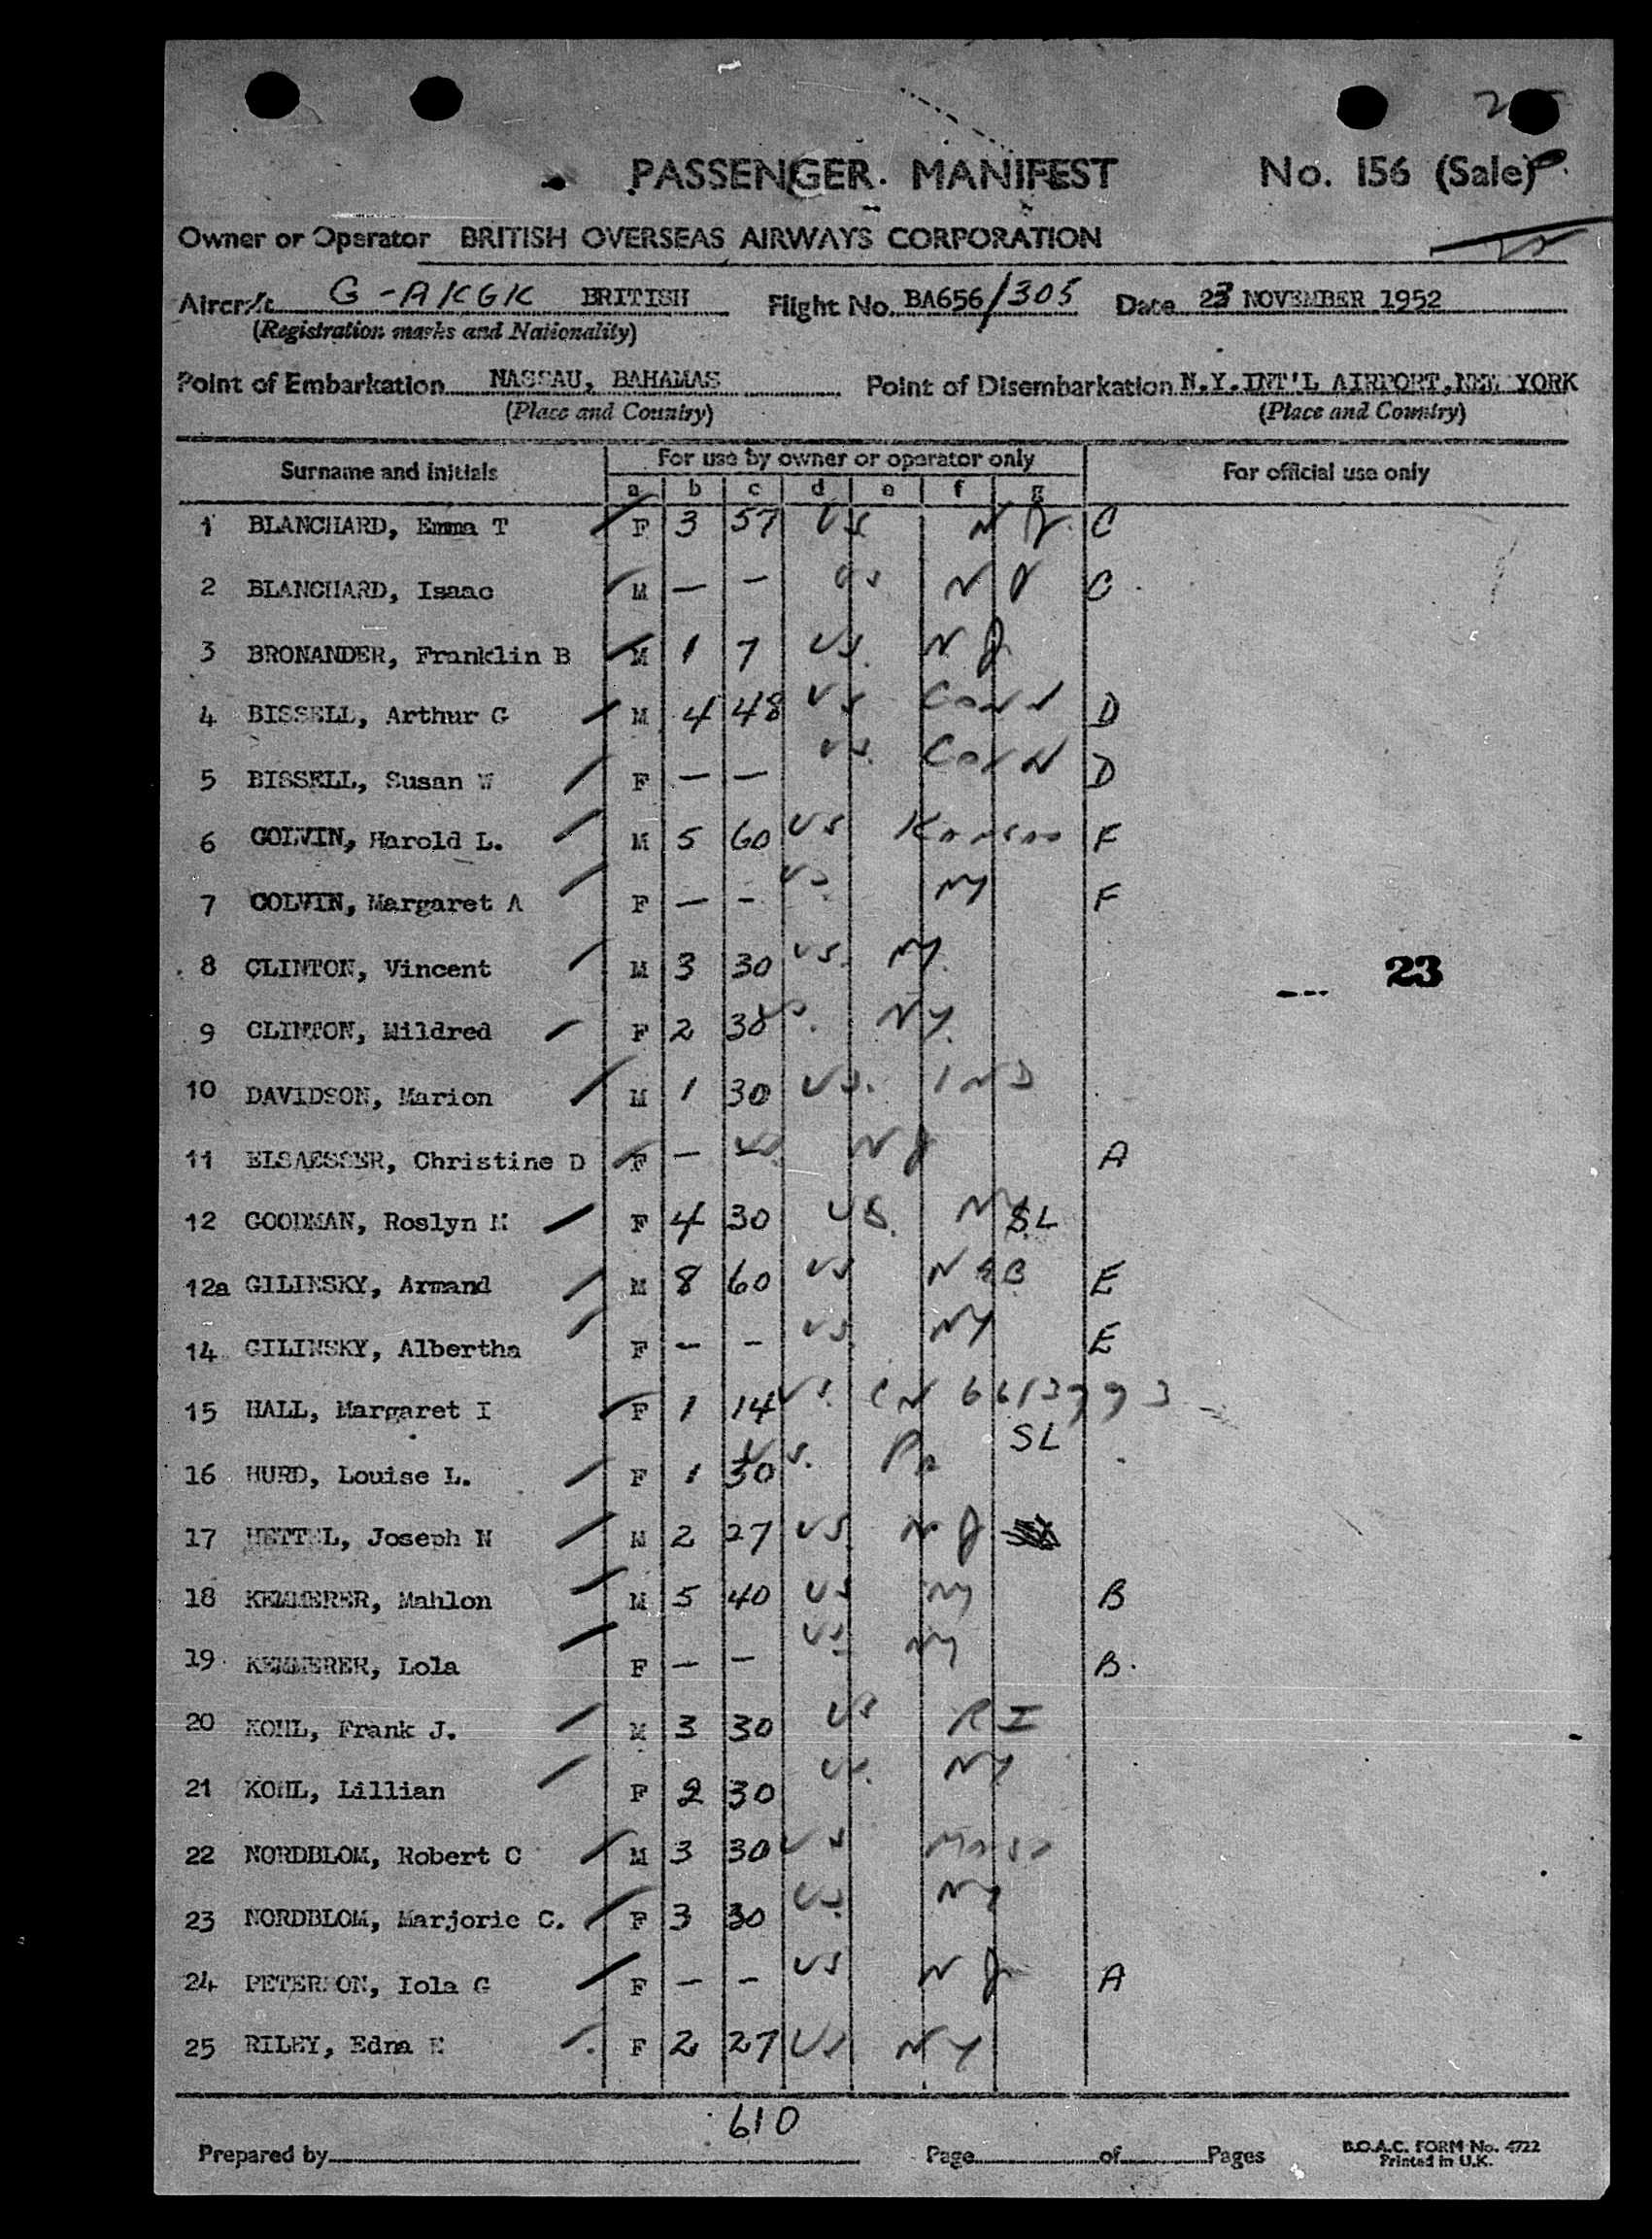 PASSENGER MANIFEST No. 156 (Sale)
Owner or Operator BRITISH OVERSEAS AIRWAYS CORPORATION
Aircraft G-AKGK BRITISH Flight No. BA656/305 Date 23 NOVEMBER 1952
(Registration marks and Nationality)
Point of Embarkation NASSAU, BAHAMAS Point of Disembarkation N.Y.INT'L AIRPORT,NEW YORK
(Place and Country) (Place and Country)
Surname and initials For use by owner or operator only For official use only
a b c d e f g
1 BLANCHARD, Emma T F 3 57 US N J C
2 BLANCHARD, Isaac M — — US N J C
3 BRONANDER, Franklin B M 1 7 US. N J
4 BISSELL, Arthur G M 4 48 US Conn D
5 BISSELL, Susan W F — — US. Conn D
6 COLVIN, Harold L. M 5 60 US Kansas F
7 COLVIN, Margaret A F — - US NY F
8 CLINTON, Vincent M 3 30 US. NY. 23
9 CLINTON, Mildred F 2 30 US. NY.
10 DAVIDSON, Marion M 1 30 US. IND
11 ELSAESSER, Christine D F — US. N J A
12 GOODMAN, Roslyn M F 4 30 US. NY SL
12a GILINSKY, Armand M 8 60 US NEB E
14 GILINSKY, Albertha F — - US NY E
15 HALL, Margaret I F 1 14 US. CN 6613993
SL
16 HURD, Louise L. F 1 30 US. Pa
17 HETTEL, Joseph N M 2 27 US N J
18 KEMMERER, Mahlon M 5 40 US NY B
19 KEMMERER, Lola F — — US NY B.
20 KOHL, Frank J. M 3 30 US R I
21 KOHL, Lillian F 2 30 US. NY
22 NORDBLOM, Robert C M 3 30 US Mass
23 NORDBLOM, Marjorie C. F 3 30 US. NY
24 PETERSON, Iola G F — - US N J A
25 RILEY, Edna E F 2 27 US NY
610
Prepared by Page of Pages
B.O.A.C. FORM No. 4722
Printed in U.K.